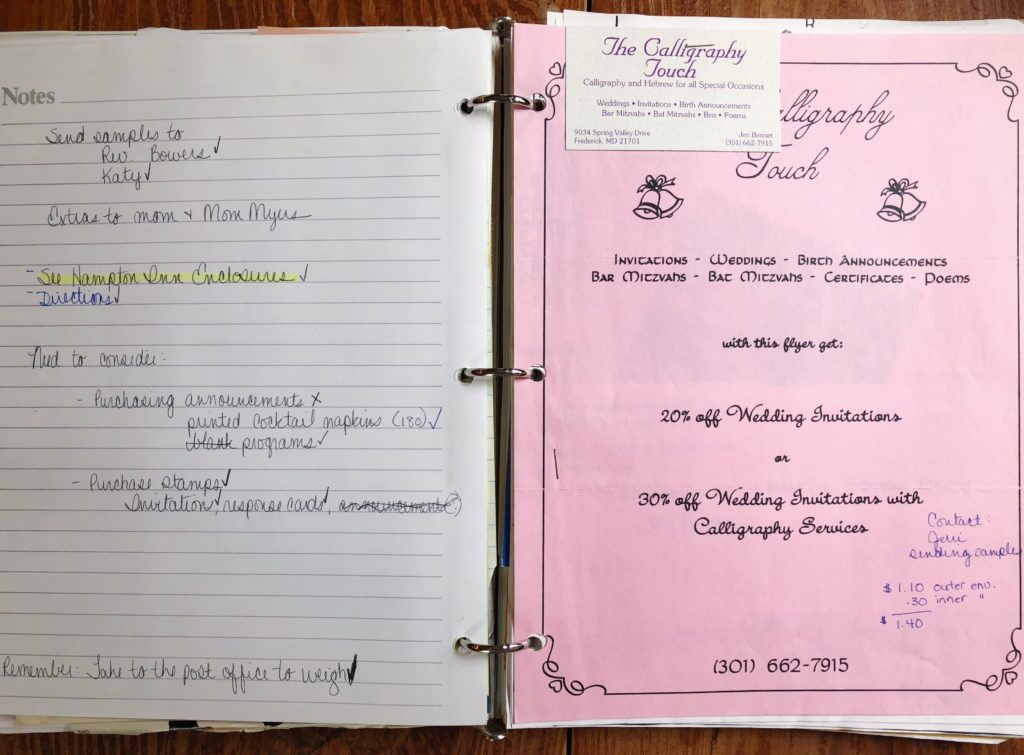 Notes
Send samples to
Rev. Bowers ✓
Katy ✓
Extras to mom + Mom Myers
- See Hampton Inn Enclosures ✓
- Directions ✓
Need to consider:
- Purchasing announcements x
printed cocktail napkins (180) ✓
blank programs ✓
- Purchase Stamps ✓
Invitation ✓, response cards ✓, announcement(?)
Remember: Take to the post office to weigh ✓
The Calligraphy
Touch
Calligraphy and Hebrew for all Special Occasions
Weddings • Invitations • Birth Announcements
Bar Mitzvahs • Bat Mitzvahs • Bris • Poems
9034 Spring Valley Drive
Frederick, MD 21701
Jeri Benner
(301) 662-7915
alligraphy
Touch
Invitations - Weddings - Birth Announcements
Bar Mitzvahs - Bat Mitzvahs - Certificates - Poems
with this flyer get:
20% off Wedding Invitations
or
30% off Wedding Invitations with
Calligraphy Services
Contact:
Jeri
sending sample
$ 1.10 outer env.
.30 inner "
$ 1.40
(301) 662-7915